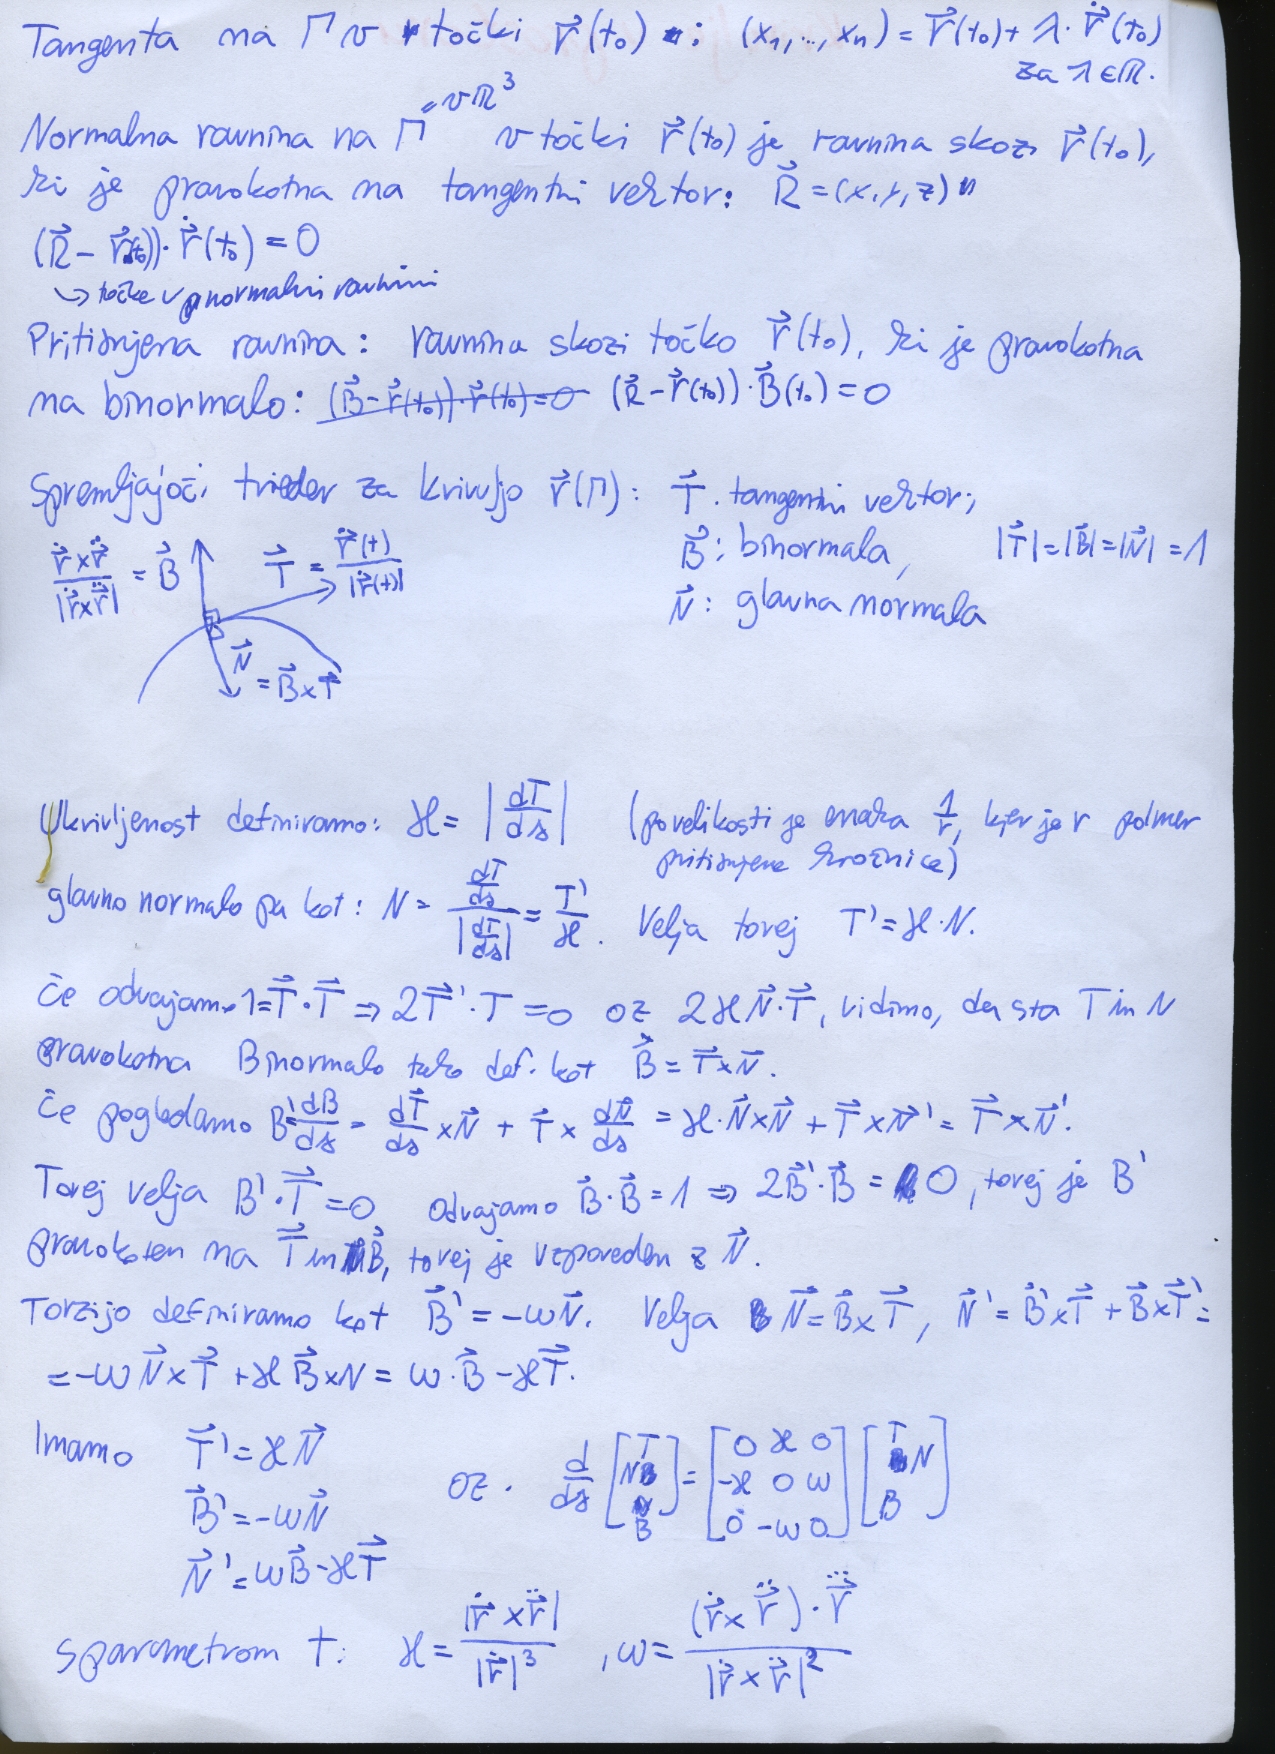 Tangenta na Γ v točki r⃗(t₀): (x₁,..,xₙ) = r⃗(t₀) + λ·ṙ⃗(t₀)
za λ∈ℝ.
Normalna ravnina na Γ v ℝ³ v točki r⃗(t₀) je ravnina skozi r⃗(t₀),
ki je pravokotna na tangentni vektor: R⃗ = (x,y,z)
(R⃗ - r⃗(t₀))·ṙ⃗(t₀) = 0
↳ točke v normalni ravnini
Pritisnjena ravnina: ravnina skozi točko r⃗(t₀), ki je pravokotna
na binormalo: (B⃗-r⃗(t₀))·r⃗(t₀)=0 (R⃗-r⃗(t₀))·B⃗(t₀)=0
Spremljajoči trieder za krivuljo r⃗(Γ): T⃗. tangentni vektor,
B⃗: binormala, |T⃗|=|B⃗|=|N⃗|=1
N⃗: glavna normala
(ṙ⃗×r̈⃗)/|ṙ⃗×r̈⃗| = B⃗ T⃗ = ṙ⃗(t)/|ṙ⃗(t)|
N⃗ = B⃗×T⃗
Ukrivljenost definiramo: ϰ = |dT⃗/ds| (po velikosti je enaka 1/r, kjer je r polmer
pritisnjene krožnice)
glavno normalo pa kot: N = (dT⃗/ds)/|dT⃗/ds| = T'/ϰ. Velja torej T'=ϰ·N.
Če odvajamo 1=T⃗·T⃗ ⇒ 2T⃗'·T=0 oz 2ϰN⃗·T⃗, vidimo, da sta T in N
pravokotna Binormalo tako def. kot B⃗=T⃗×N⃗.
Če pogledamo B'=dB/ds = dT⃗/ds×N⃗ + T⃗×dN⃗/ds = ϰ·N⃗×N⃗+T⃗×N⃗'=T⃗×N⃗'.
Torej velja B'·T⃗=0 odvajamo B⃗·B⃗=1 ⇒ 2B⃗'·B⃗=0, torej je B'
pravokoten na T⃗ in B⃗, torej je vzporeden z N⃗.
Torzijo definiramo kot B⃗'=-ωN⃗. Velja N⃗=B⃗×T⃗, N⃗'=B⃗'×T⃗+B⃗×T⃗'=
=-ωN⃗×T⃗+ϰB⃗×N=ω·B⃗-ϰT⃗.
Imamo T⃗'=ϰN⃗
B⃗'=-ωN⃗
N⃗'=ωB⃗-ϰT⃗
oz. d/ds [T N B] = [0 ϰ 0; -ϰ 0 ω; 0 -ω 0] [T N B]
s parametrom t: ϰ = |ṙ⃗×r̈⃗|/|ṙ⃗|³, ω = (ṙ⃗×r̈⃗)·r⃛/|ṙ⃗×r̈⃗|²